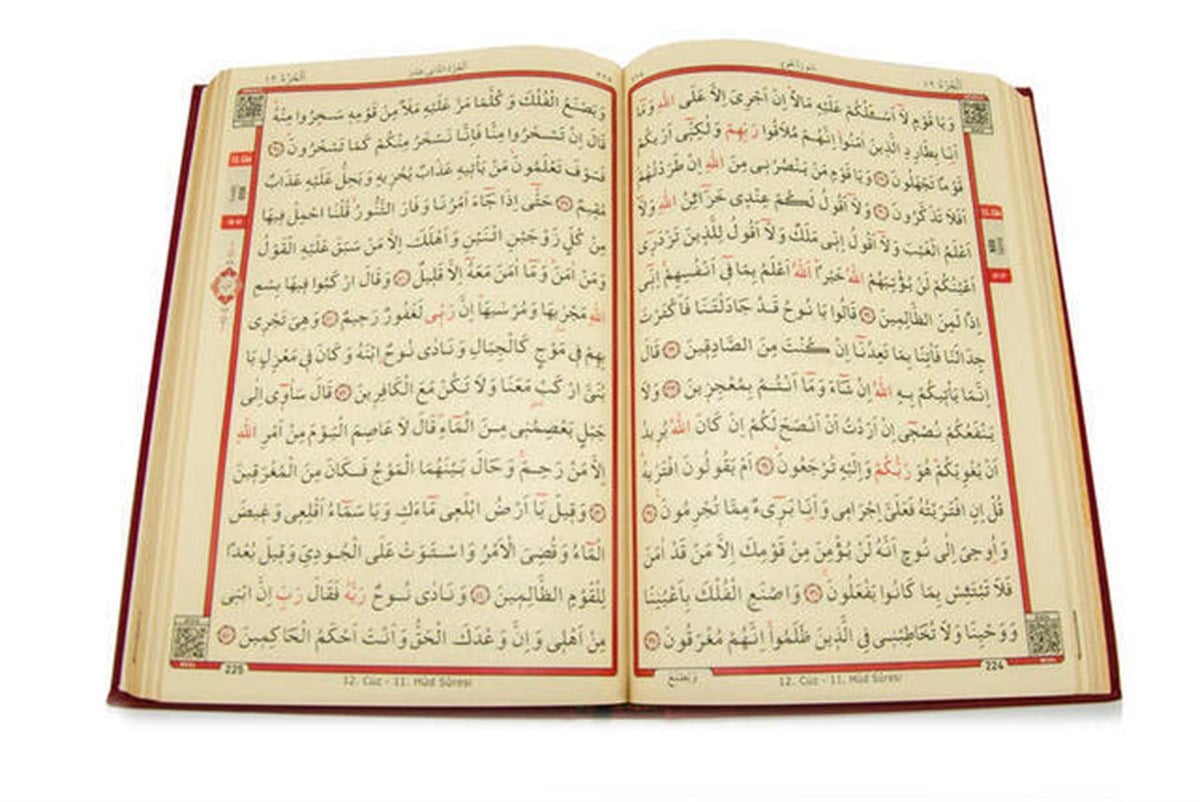 سُورَةُ هُودٍ
اَلْجُزْءُ ١٢
وَيَا قَوْمِ لَٓا اَسْـَٔلُكُمْ عَلَيْهِ مَالًاۜ اِنْ اَجْرِيَ اِلَّا عَلَى اللّٰهِ وَمَٓا
اَنَا۬ بِطَارِدِ الَّذ۪ينَ اٰمَنُواۜ اِنَّهُمْ مُلَاقُوا رَبِّهِمْ وَلٰكِنّ۪ٓي اَرٰيكُمْ
قَوْمًا تَجْهَلُونَ ﴿٢٩﴾ وَيَا قَوْمِ مَنْ يَنْصُرُن۪ي مِنَ اللّٰهِ اِنْ طَرَدْتُهُمْۜ
اَفَلَا تَذَكَّرُونَ ﴿٣٠﴾ وَلَٓا اَقُولُ لَكُمْ عِنْد۪ي خَزَٓائِنُ اللّٰهِ وَلَٓا
اَعْلَمُ الْغَيْبَ وَلَٓا اَقُولُ اِنّ۪ي مَلَكٌ وَلَٓا اَقُولُ لِلَّذ۪ينَ تَزْدَر۪ٓي
اَعْيُنُكُمْ لَنْ يُؤْتِيَهُمُ اللّٰهُ خَيْرًاۜ اَللّٰهُ اَعْلَمُ بِمَا ف۪ٓي اَنْفُسِهِمْۚ اِنّ۪ٓي
اِذًا لَمِنَ الظَّالِم۪ينَ ﴿٣١﴾ قَالُوا يَا نُوحُ قَدْ جَادَلْتَنَا فَاَكْثَرْتَ
جِدَالَنَا فَأْتِنَا بِمَا تَعِدُنَٓا اِنْ كُنْتَ مِنَ الصَّادِق۪ينَ ﴿٣٢﴾ قَالَ
اِنَّمَا يَأْت۪يكُمْ بِهِ اللّٰهُ اِنْ شَٓاءَ وَمَٓا اَنْتُمْ بِمُعْجِز۪ينَ ﴿٣٣﴾ وَلَا
يَنْفَعُكُمْ نُصْح۪ٓي اِنْ اَرَدْتُ اَنْ اَنْصَحَ لَكُمْ اِنْ كَانَ اللّٰهُ يُر۪يدُ
اَنْ يُغْوِيَكُمْۜ هُوَ رَبُّكُمْ وَاِلَيْهِ تُرْجَعُونَۜ ﴿٣٤﴾ اَمْ يَقُولُونَ افْتَرٰيهُۜ
قُلْ اِنِ افْتَرَيْتُهُ فَعَلَيَّ اِجْرَام۪ي وَاَنَا۬ بَر۪ٓيءٌ مِمَّا تُجْرِمُونَ۟ ﴿٣٥﴾
وَاُو۫حِيَ اِلٰى نُوحٍ اَنَّهُ لَنْ يُؤْمِنَ مِنْ قَوْمِكَ اِلَّا مَنْ قَدْ اٰمَنَ
فَلَا تَبْتَئِسْ بِمَا كَانُوا يَفْعَلُونَۚ ﴿٣٦﴾ وَاصْنَعِ الْفُلْكَ بِاَعْيُنِنَا
وَوَحْيِنَا وَلَا تُخَاطِبْن۪ي فِي الَّذ۪ينَ ظَلَمُواۚ اِنَّهُمْ مُغْرَقُونَ ﴿٣٧﴾
وَيَصْنَعُ
224
12. Cüz - 11. Hûd Sûresi
12. Cüz
اَلْجُزْءُ ١٢
اَلْجُزْءُ الثَّانِي عَشَرَ
وَيَصْنَعُ الْفُلْكَ وَكُلَّمَا مَرَّ عَلَيْهِ مَلَأٌ مِنْ قَوْمِه۪ سَخِرُوا مِنْهُۜ
قَالَ اِنْ تَسْخَرُوا مِنَّا فَاِنَّا نَسْخَرُ مِنْكُمْ كَمَا تَسْخَرُونَۜ ﴿٣٨﴾
فَسَوْفَ تَعْلَمُونَۙ مَنْ يَأْت۪يهِ عَذَابٌ يُخْز۪يهِ وَيَحِلُّ عَلَيْهِ عَذَابٌ
مُق۪يمٌ ﴿٣٩﴾ حَتّٰٓى اِذَا جَٓاءَ اَمْرُنَا وَفَارَ التَّنُّورُۙ قُلْنَا احْمِلْ ف۪يهَا
مِنْ كُلٍّ زَوْجَيْنِ اثْنَيْنِ وَاَهْلَكَ اِلَّا مَنْ سَبَقَ عَلَيْهِ الْقَوْلُ
وَمَنْ اٰمَنَۜ وَمَٓا اٰمَنَ مَعَهُٓ اِلَّا قَل۪يلٌ ﴿٤٠﴾ وَقَالَ ارْكَبُوا ف۪يهَا بِسْمِ
اللّٰهِ مَجْرٰۭيهَا وَمُرْسٰيهَاۜ اِنَّ رَبّ۪ي لَغَفُورٌ رَح۪يمٌ ﴿٤١﴾ وَهِيَ تَجْر۪ي
بِهِمْ ف۪ي مَوْجٍ كَالْجِبَالِ وَنَادٰى نُوحٌ ابْنَهُ وَكَانَ ف۪ي مَعْزِلٍ يَا
بُنَيَّ ارْكَبْ مَعَنَا وَلَا تَكُنْ مَعَ الْكَافِر۪ينَ ﴿٤٢﴾ قَالَ سَاٰو۪ٓي اِلٰى
جَبَلٍ يَعْصِمُن۪ي مِنَ الْمَٓاءِۜ قَالَ لَا عَاصِمَ الْيَوْمَ مِنْ اَمْرِ اللّٰهِ
اِلَّا مَنْ رَحِمَۚ وَحَالَ بَيْنَهُمَا الْمَوْجُ فَكَانَ مِنَ الْمُغْرَق۪ينَ
﴿٤٣﴾ وَق۪يلَ يَٓا اَرْضُ ابْلَع۪ي مَٓاءَكِ وَيَا سَمَٓاءُ اَقْلِع۪ي وَغ۪يضَ
الْمَٓاءُ وَقُضِيَ الْاَمْرُ وَاسْتَوَتْ عَلَى الْجُودِيِّ وَق۪يلَ بُعْدًا
لِلْقَوْمِ الظَّالِم۪ينَ ﴿٤٤﴾ وَنَادٰى نُوحٌ رَبَّهُ فَقَالَ رَبِّ اِنَّ ابْن۪ي
مِنْ اَهْل۪ي وَاِنَّ وَعْدَكَ الْحَقُّ وَاَنْتَ اَحْكَمُ الْحَاكِم۪ينَ ﴿٤٥﴾
225
12. Cüz - 11. Hûd Sûresi
12. Cüz